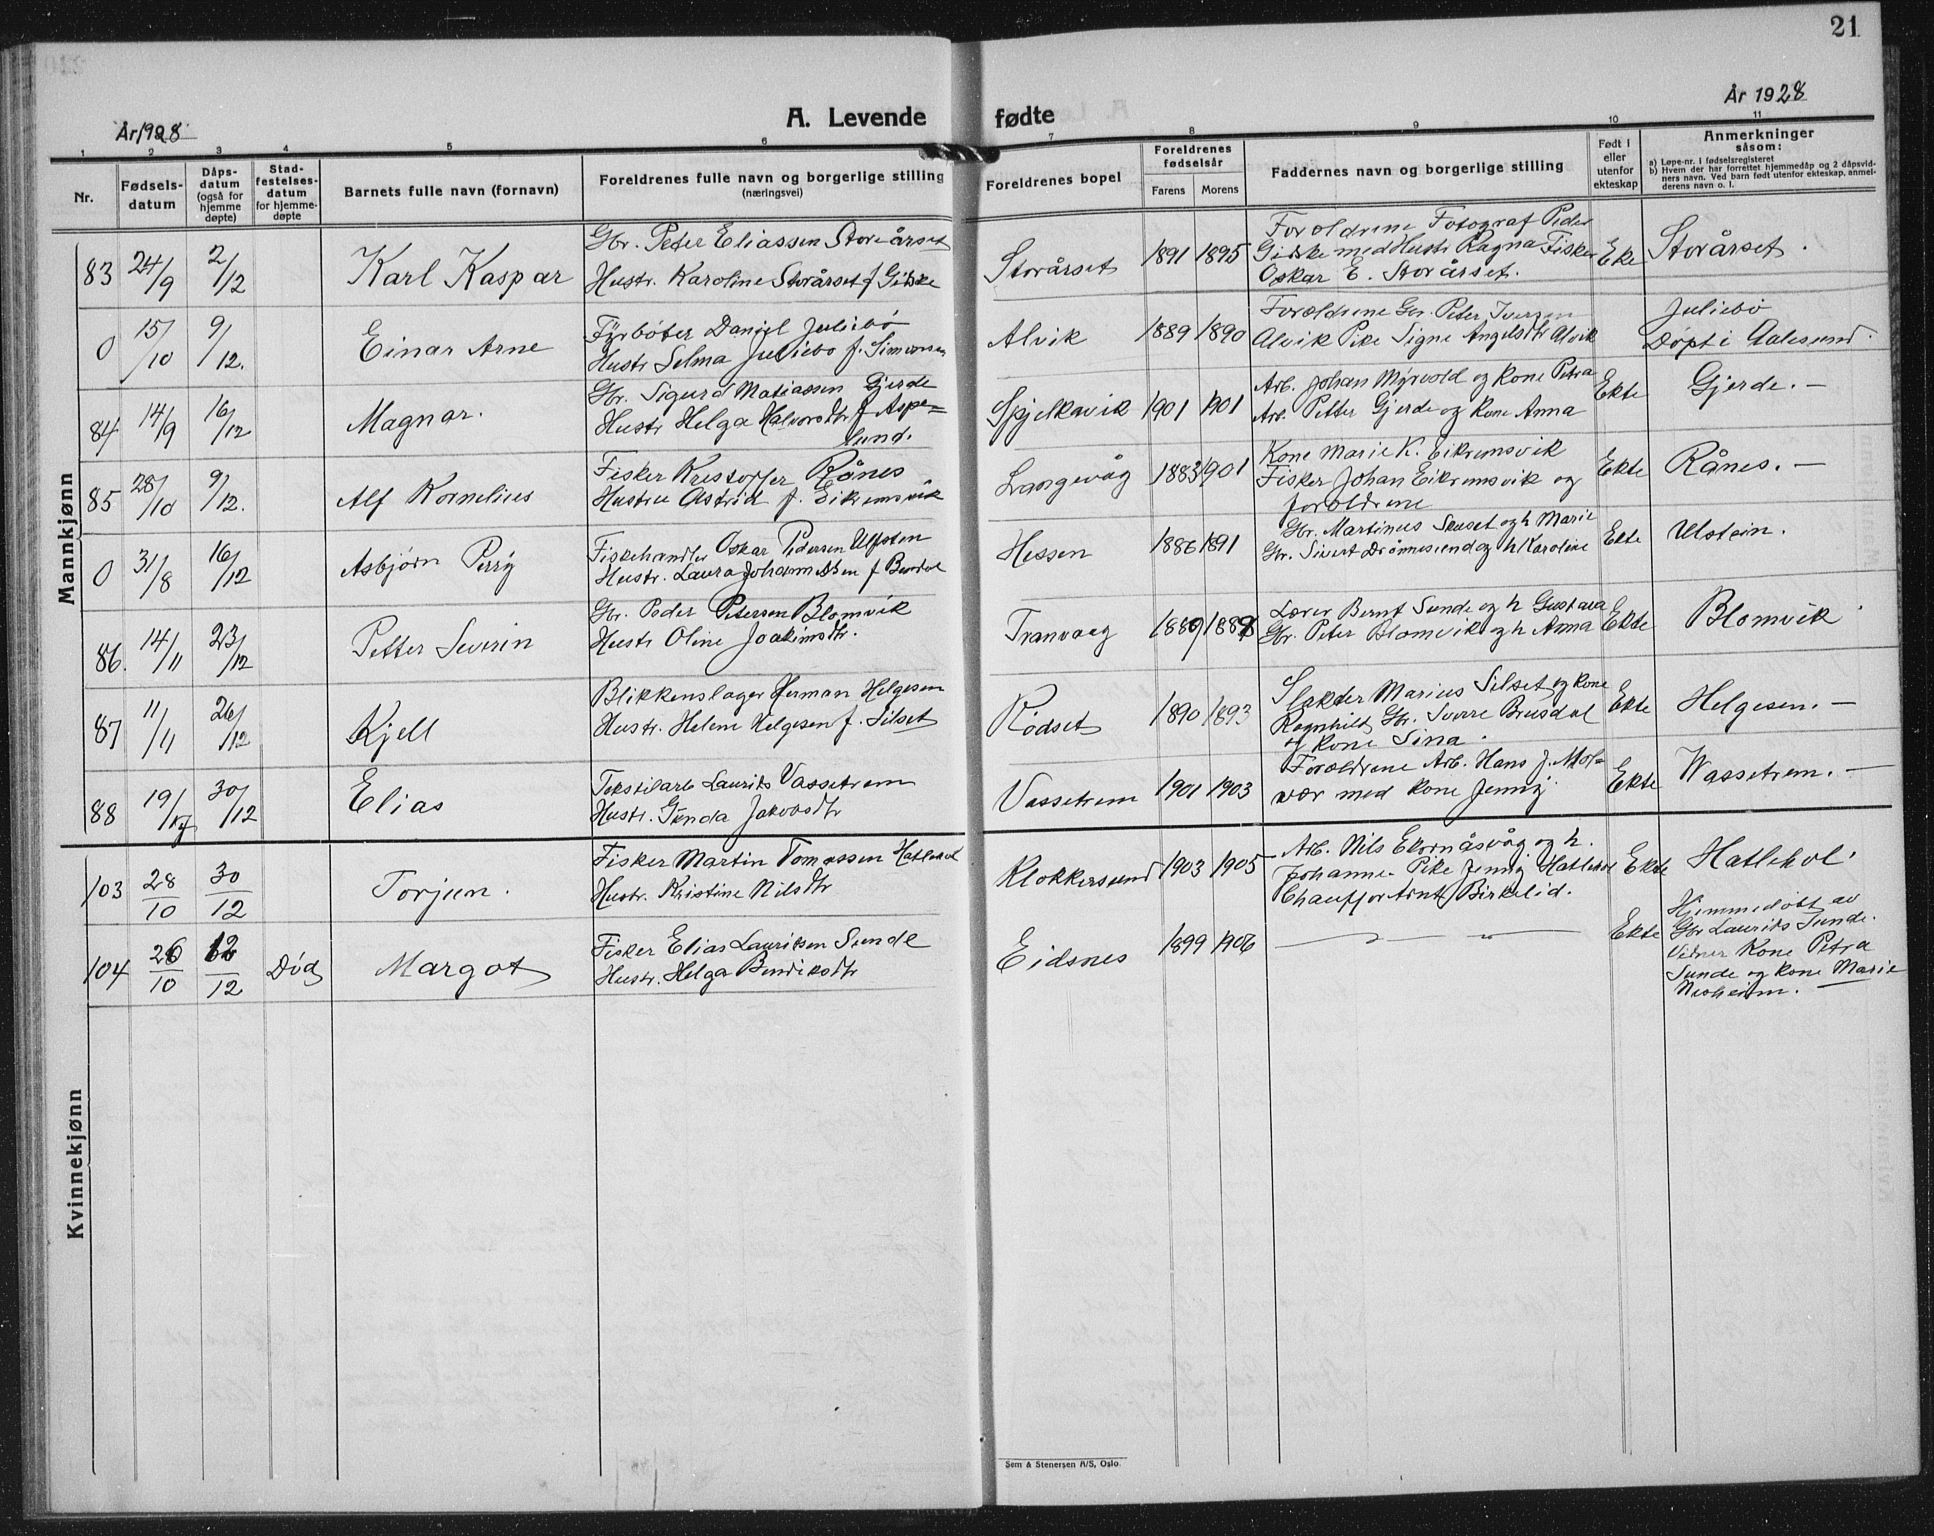 21
År 1928
År 1928
A. Levende fødte
1 2 3 4 5 6 7 8 9 10 11
Nr.
Fødsels-
datum
Dåps-
datum
(også for
hjemme
døpte)
Stad-
festelses-
datum
for hjemme-
døpte
Barnets fulle navn (fornavn)
Foreldrenes fulle navn og borgerlige stilling
(næringsvei)
Foreldrenes bopel
Foreldrenes
fødselsår
Farens Morens
Faddernes navn og borgerlige stilling
Født i
eller
utenfor
ekteskap
Anmerkninger
såsom:
a) Løpe-nr. i fødselsregisteret
b) Hvem der har forrettet hjemmedåp og 2 dåpsvid-
ners navn. Ved barn født utenfor ekteskap, anmel-
derens navn o. l.
Mannkjønn
83 24/9 2/12 Karl Kaspar
Gbr. Peter Eliassen Storeårset
Hustr. Karoline Storårset f. Giske
Storårset 1891 1895
Foroldrene Fotograf Peder
Giske med Hustr Ragna Fisker
Oskar E. Storårset.
Eke Storårset.
0 15/10 9/12. Einar Arne
Fyrbøter Daniel Juliebø
Hustr Selma Juliebø f. Simonsen
Alvik 1889 1890
Forældrene Gbr. Peter Iversen
Alvik Pike Signe Alvik
Juliebø
Døpt i Aalesund.
84 14/9 16/12 Magnar.
Gbr. Sigurd Matiassen Gjerde
Hustr Helga Halvorsdtr f. Aspe=
sund.
Spjelkavik 1901 1901
Arb. Johan Myrvold og kone Petra
Arb. Petter Gjerde og kone Anna
Ekte Gjerde. —
85 28/10 9/12. Alf Kornelius
Fisker Kristoffer Rånes
Hustru Astrid f. Eikremsvik
Langevåg 1883 1901
Kone Marie K. Eikremsvik
Fisker Johan Eikremsvik og
foroldrene
Ekte Rånes. —
0 31/8 16/12 Asbjørn Perry
Fiskehandler Oskar Pedersen Ulfsten
Hustr. Laura f
Hessen 1886 1891
Gbr. Martinus og h Marie
Gbr. Sivert Drønnesund og h Karoline
Ekte Ulstein.
86. 14/11 23/12 Petter Severin
Gbr. Peder Petersen Blomvik
Hustr Oline Joakimsdtr.
Tranvaag
Lærer Bernt Sunde og h Gustava
Gbr. Peter Blomvik og h Anna
Ekte Blomvik
87 11/11 26/12 Kjell
Blikkenslager Herman Helgesen
Hustr. Helene Helgesen f. Silset
Rødset 1890 1893
Slakter Marius Silset og kone
Ragnhild, Gbr. Sverre Brusdal
og kone Sina.
Ekte Helgesen. —
88 19/ 30/12 Elias
Tekstilarb Laurits Vassetrem
Hustr. Gunda Jakobsdtr
Vassetrem 1901 1903
Foroldrene Arb. Hans J. Mol=
vær med kone Jenny
Ekte Wassetrem. —
Kvinnekjønn
103 28/10 30/12 Torjun.
Fisker Martin Tomassen Hatlehol
Hustr. Kristine Nilsdtr
Klokkersund 1903 1905
Arb. Nils Ekornåsvåg og h.
Johanne. Pike Jenny Hatlehol
Chauffør Arnt Birkelid.
Ekte Hatlehol.
104 26/10 12/12 Død Margot
Fisker Elias Lauritsen Sunde
Hustr. Helga Bendiksdtr
Eidsnes 1899 1906
— " — " —
Ekte
Hjemmedøbt av
Gbr Laurits Sunde.
Vidner Kone Petra
Sunde og kone Marie
Sem & Stenersen A/S, Oslo.